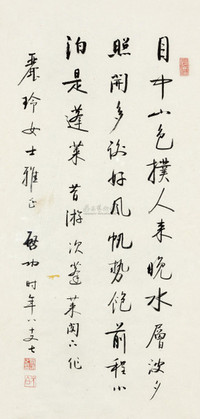 目中山色撲人来晚水層波夕
照開多謝好風帆勢飽前程小
泊是蓬莱 昔游次蓬莱閣六作
麗玲女士雅正 啟功时年八十又七